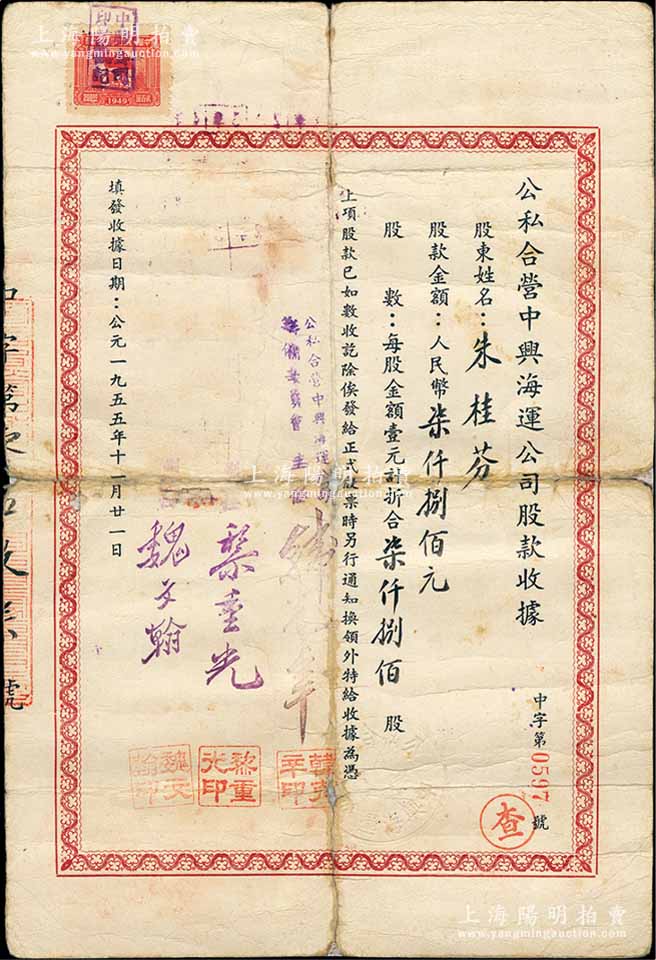 公私合營中興海運公司股款收據
中字第0597號
查
股東姓名：朱桂芬
股款金額：人民幣柒仟捌佰元
股數：每股金額壹元計折合柒仟捌佰股
上項股款已如數收訖除俟發給正式股票時另行通知換領外特給收據為憑
公私合營中興海運
籌備委員會主
黎重光
魏文翰
黎重光印
魏文翰印
填發收據日期：公元一九五五年十一月廿一日
1949
上海陽明拍賣
www.yangmingauction.com
上海陽明拍賣
www.yangmingauction.com
上海陽明拍賣
www.yangmingauction.com